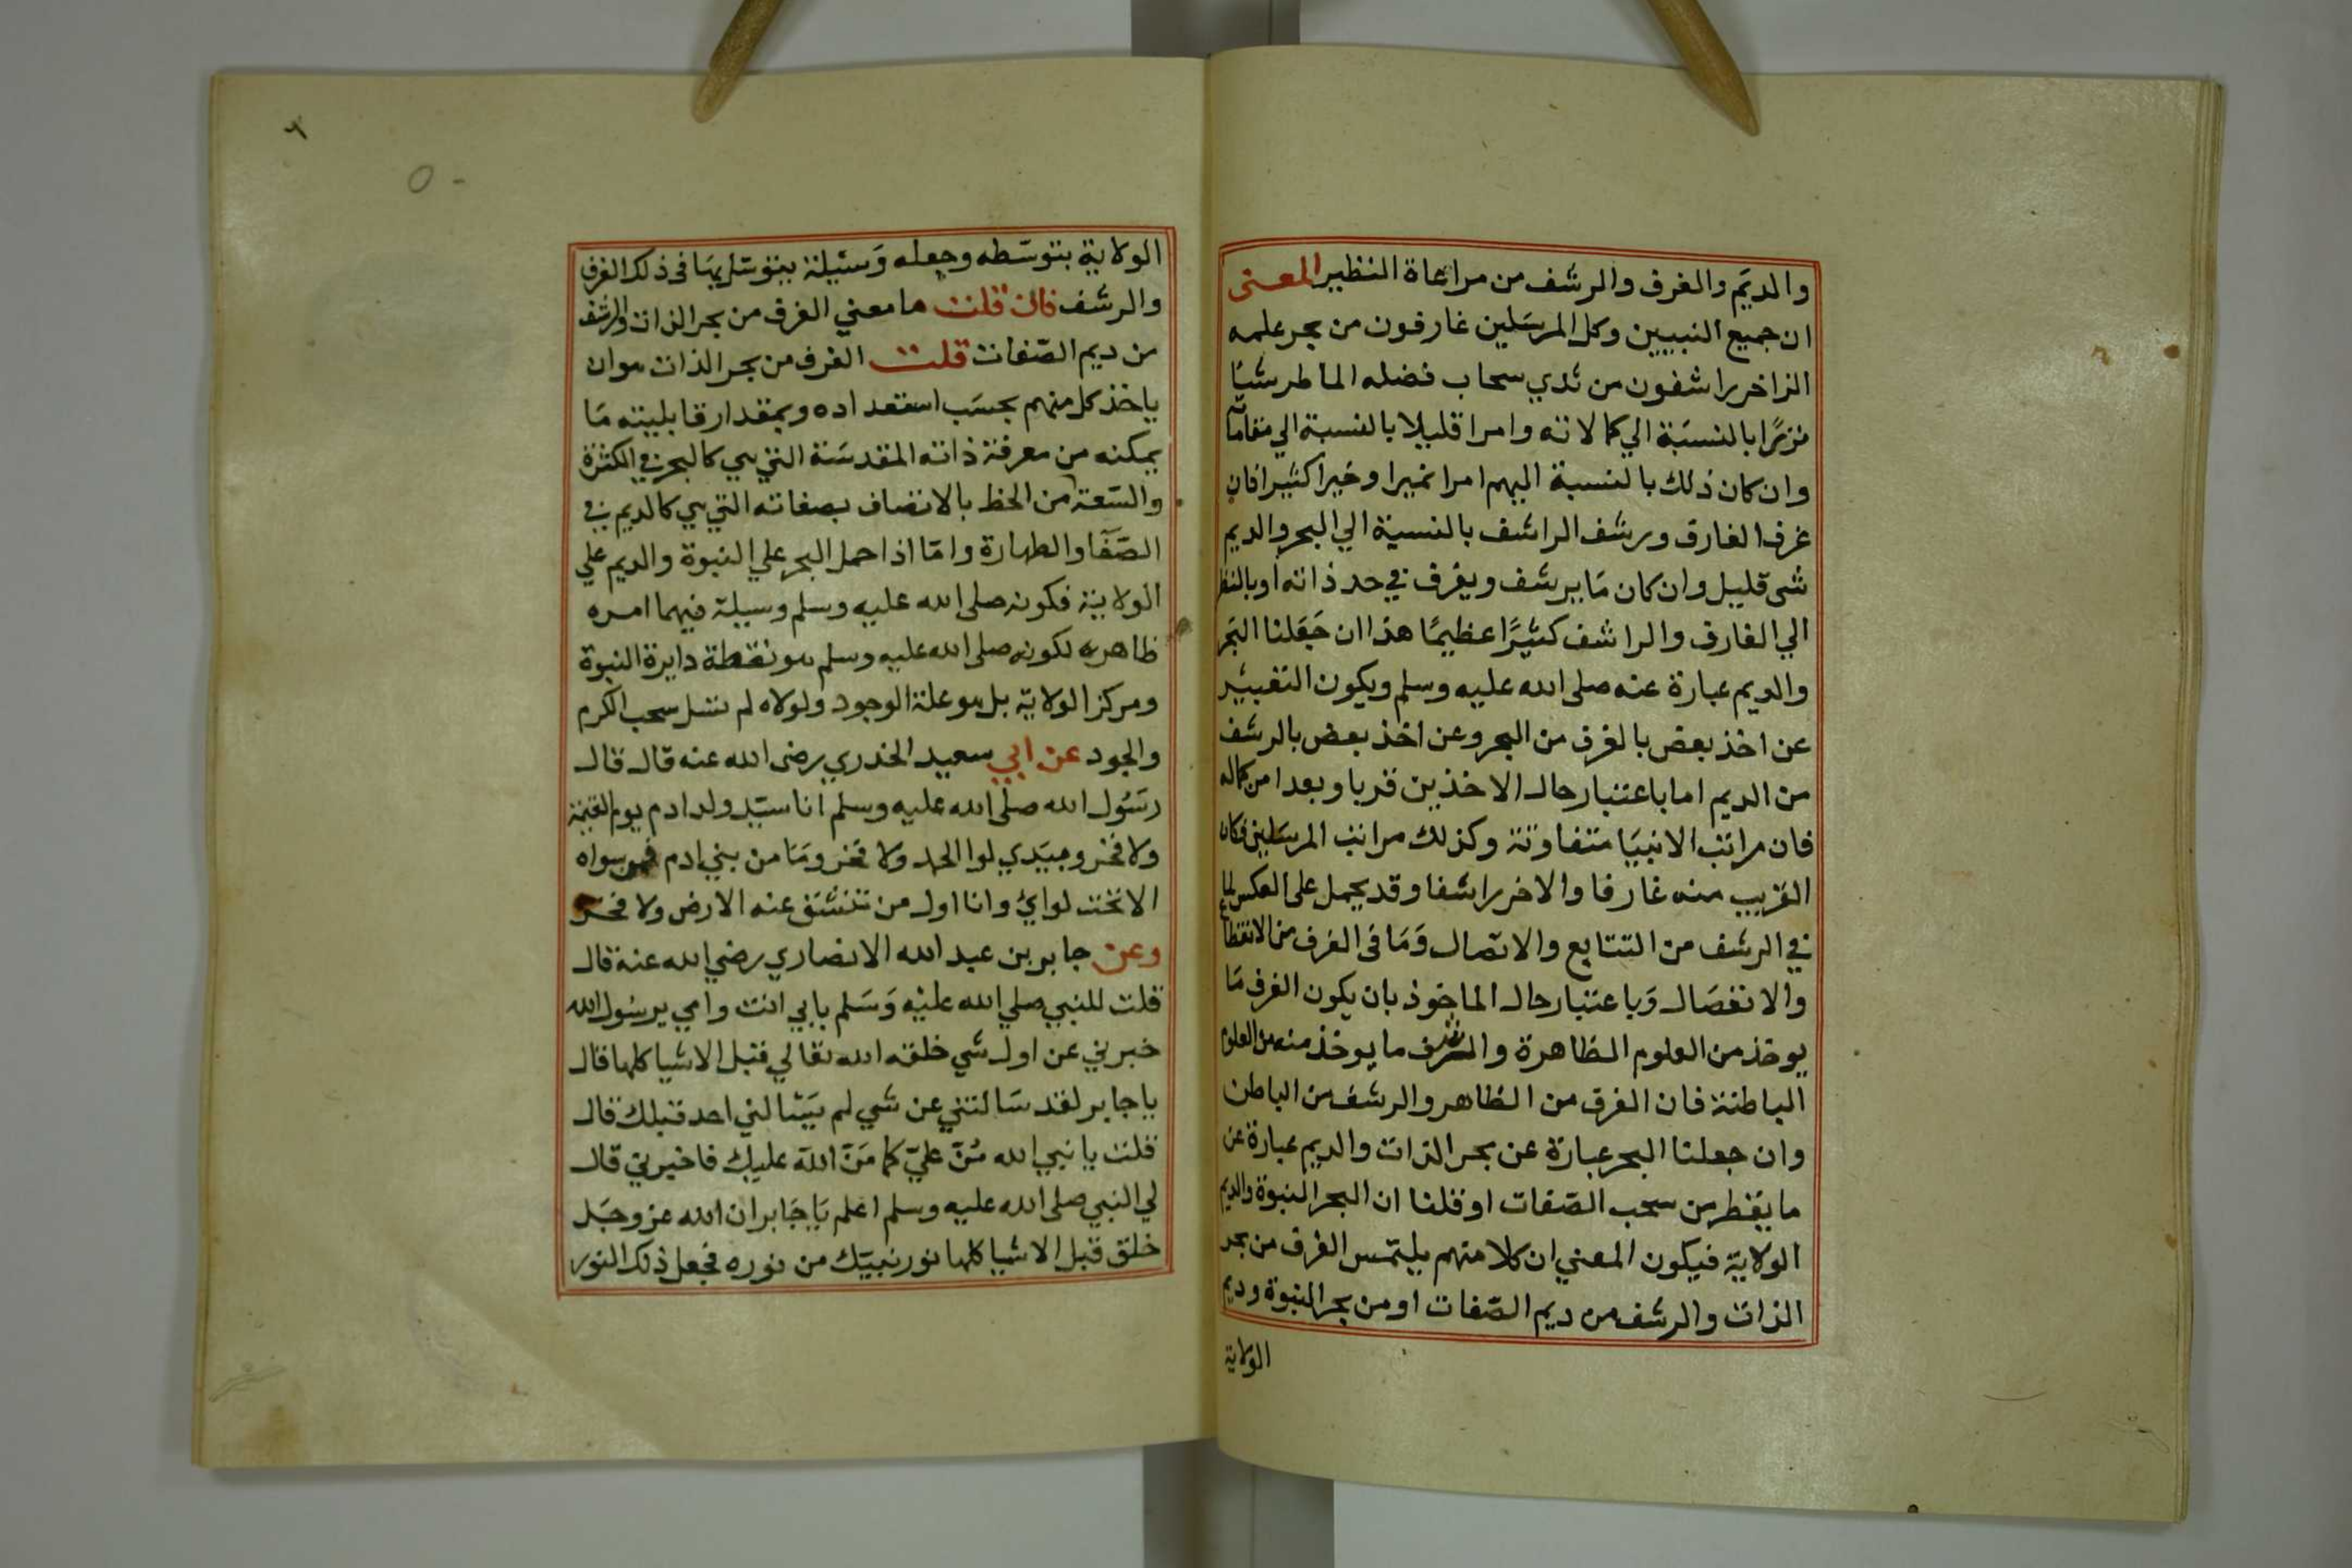 والديَم والغرف والرشف من مراعاة النظير المعنى
ان جميع النبيين وكل المرسَلين غارفون من بحر علمه
الزاخر راشفون من ثدي سحاب فضله الماطر شيئًا
نزرًا بالنسبَة الي كمالاته وامرا قليلا بالنسبة الي مقاماته
وان كان ذلك بالنسبة اليهم امرا نميرا وخيرا كثيرا فان
غرف الغارف ورشف الراشف بالنسبة الي البحر والديم
شى قليل وان كان مَا يرشف ويغرف في حد ذاته او بالنظر
الي الغارف والراشف كثيرًا عظيمًا هذا ان جَعَلنا البَحر
والديم عبارة عنه صلى الله عليه وسلم ويكون التعبير
عن اخذ بعض بالغرف من البحر وعن اخذ بعض بالرشف
من الديم اما باعتبار حال الاخذين قربا وبعدا من كماله
فان مراتب الانبيَا متفاوتة وكذلك مراتب المرسَلين فكان
القريب منه غارفا والاخر راشفا وقد يحمل على العكس لما
في الرشف من التتابع والاتصال وَمَا فى الغرف من الانقطاع
والانفصَال وَباعتبار حال الماخوذ بان يكون الغرف مَا
يوخذ من العلوم الظاهرة والرشف ما يوخذ منه من العلوم
الباطنة فان الغرف من الظاهر والرشف من الباطن
وان جعلنا البحر عبارة عن بحر الذات والديم عبارة عن
ما يقطر من سحب الصّفات او قلنا ان البحر النبوة والديم
الولاية فيكون المعني ان كلا منهم يلتمس الغرف من بحر
الذات والرشف من ديم الصّفات او من بحر النبوة وديم
الولاية
٦
الولاية بتوسّطه وجعله وَسيلة يتوسّل بهَا فى ذلك الغرف
والرشف فان قلت ما معني الغرف من بحر الذات والرشف
من ديم الصّفات قلت الغرف من بحر الذات هو ان
ياخذ كل منهم بحسَب استعداده وبمقدار قابليته مَا
يمكنه من معرفة ذاته المقدسَة التي هي كالبحر في الكثرة
والسّعة من الحظ بالاتصاف بصفاته التي هي كالديم في
الصّفَا والطهارة وامّا اذا حمل البحر علي النبوة والديم علي
الولاية فكونه صلى الله عليه وسلم وسيلة فيهما امره
ظاهر لكونه صلى الله عليه وسلم هو نقطة دايرة النبوة
ومركز الولاية بل هو علة الوجود ولولاه لم تسل سحب الكرم
والجود عن ابي سعيد الخدري رضى الله عنه قال قال
رسُول الله صلى الله عليه وسلم انا سيّد ولد ادم يوم القيٰمة
ولا فخر وبيَدي لوا الحمد ولا فخر ومَا من بني ادم فمن سواه
الا تحت لوائ وانا اول من تنشق عنه الارض ولا فخر
وعن جابر بن عبد الله الانصاري رضي الله عنه قال
قلت للنبي صلي الله عليْه وَسَلم بابي انت وامي يرسُول الله
خبرني عن اول شي خلقه الله تعالي قبل الاشيا كلها قال
ياجابر لقد سَالتني عن شي لم يَسْالني احد قبلك قال
قلت يا نبي الله مُنّ عليّ كما مَنّ اللّه عليك فاخبرني قال
لي النبي صلى الله عليه وسلم اعلم يَاجَابر ان الله عز وجَل
خلق قبل الاشيا كلها نور نبيّك من نوره فجعل ذلك النور